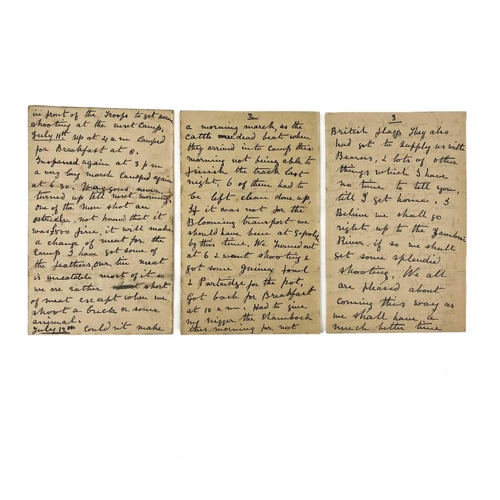 in front of the Troops to get some
shooting at the next Camp,
July 11th up at 4 a m Camped
for Breakfast at 8.
Inspaned again at 3 p m
a very long march Camped again
at 6.30. Waggons never
turned up till next morning,
one of the Men shot an
ostridge, not known that it
was £100 fine, it will make
a change of meat for the
Camp I have got some of
the feathers, our tin meat
is uneatable most of it so
we are rather short
of meat except when we
shoot a buck or some
animal.
July 12th Could'nt make
2
a morning march, as the
cattle were dead beat when
they arrived into Camp this
morning not being able to
finish the track last
night, 6 of them had to
be left, clean done up,
If it was not for the
Blooming transport we
should have been at
by this time, We turned out
at 6 & went shooting &
got some Guinea fowl
& Partridge for the pot,
Got back for Breakfast
at 10 a m. Had to give
my nigger the Shambock
this morning for not
3
British flag. They also
had got to Supply us with
Bearers, & lots of other
things which I have
no time to tell you,
till I get home, I
Believe we shall go
right up to the Zambesi
River, if so we shall
get some splendid
shooting, We all
are pleased about
coming this way as
we shall have a
much better time